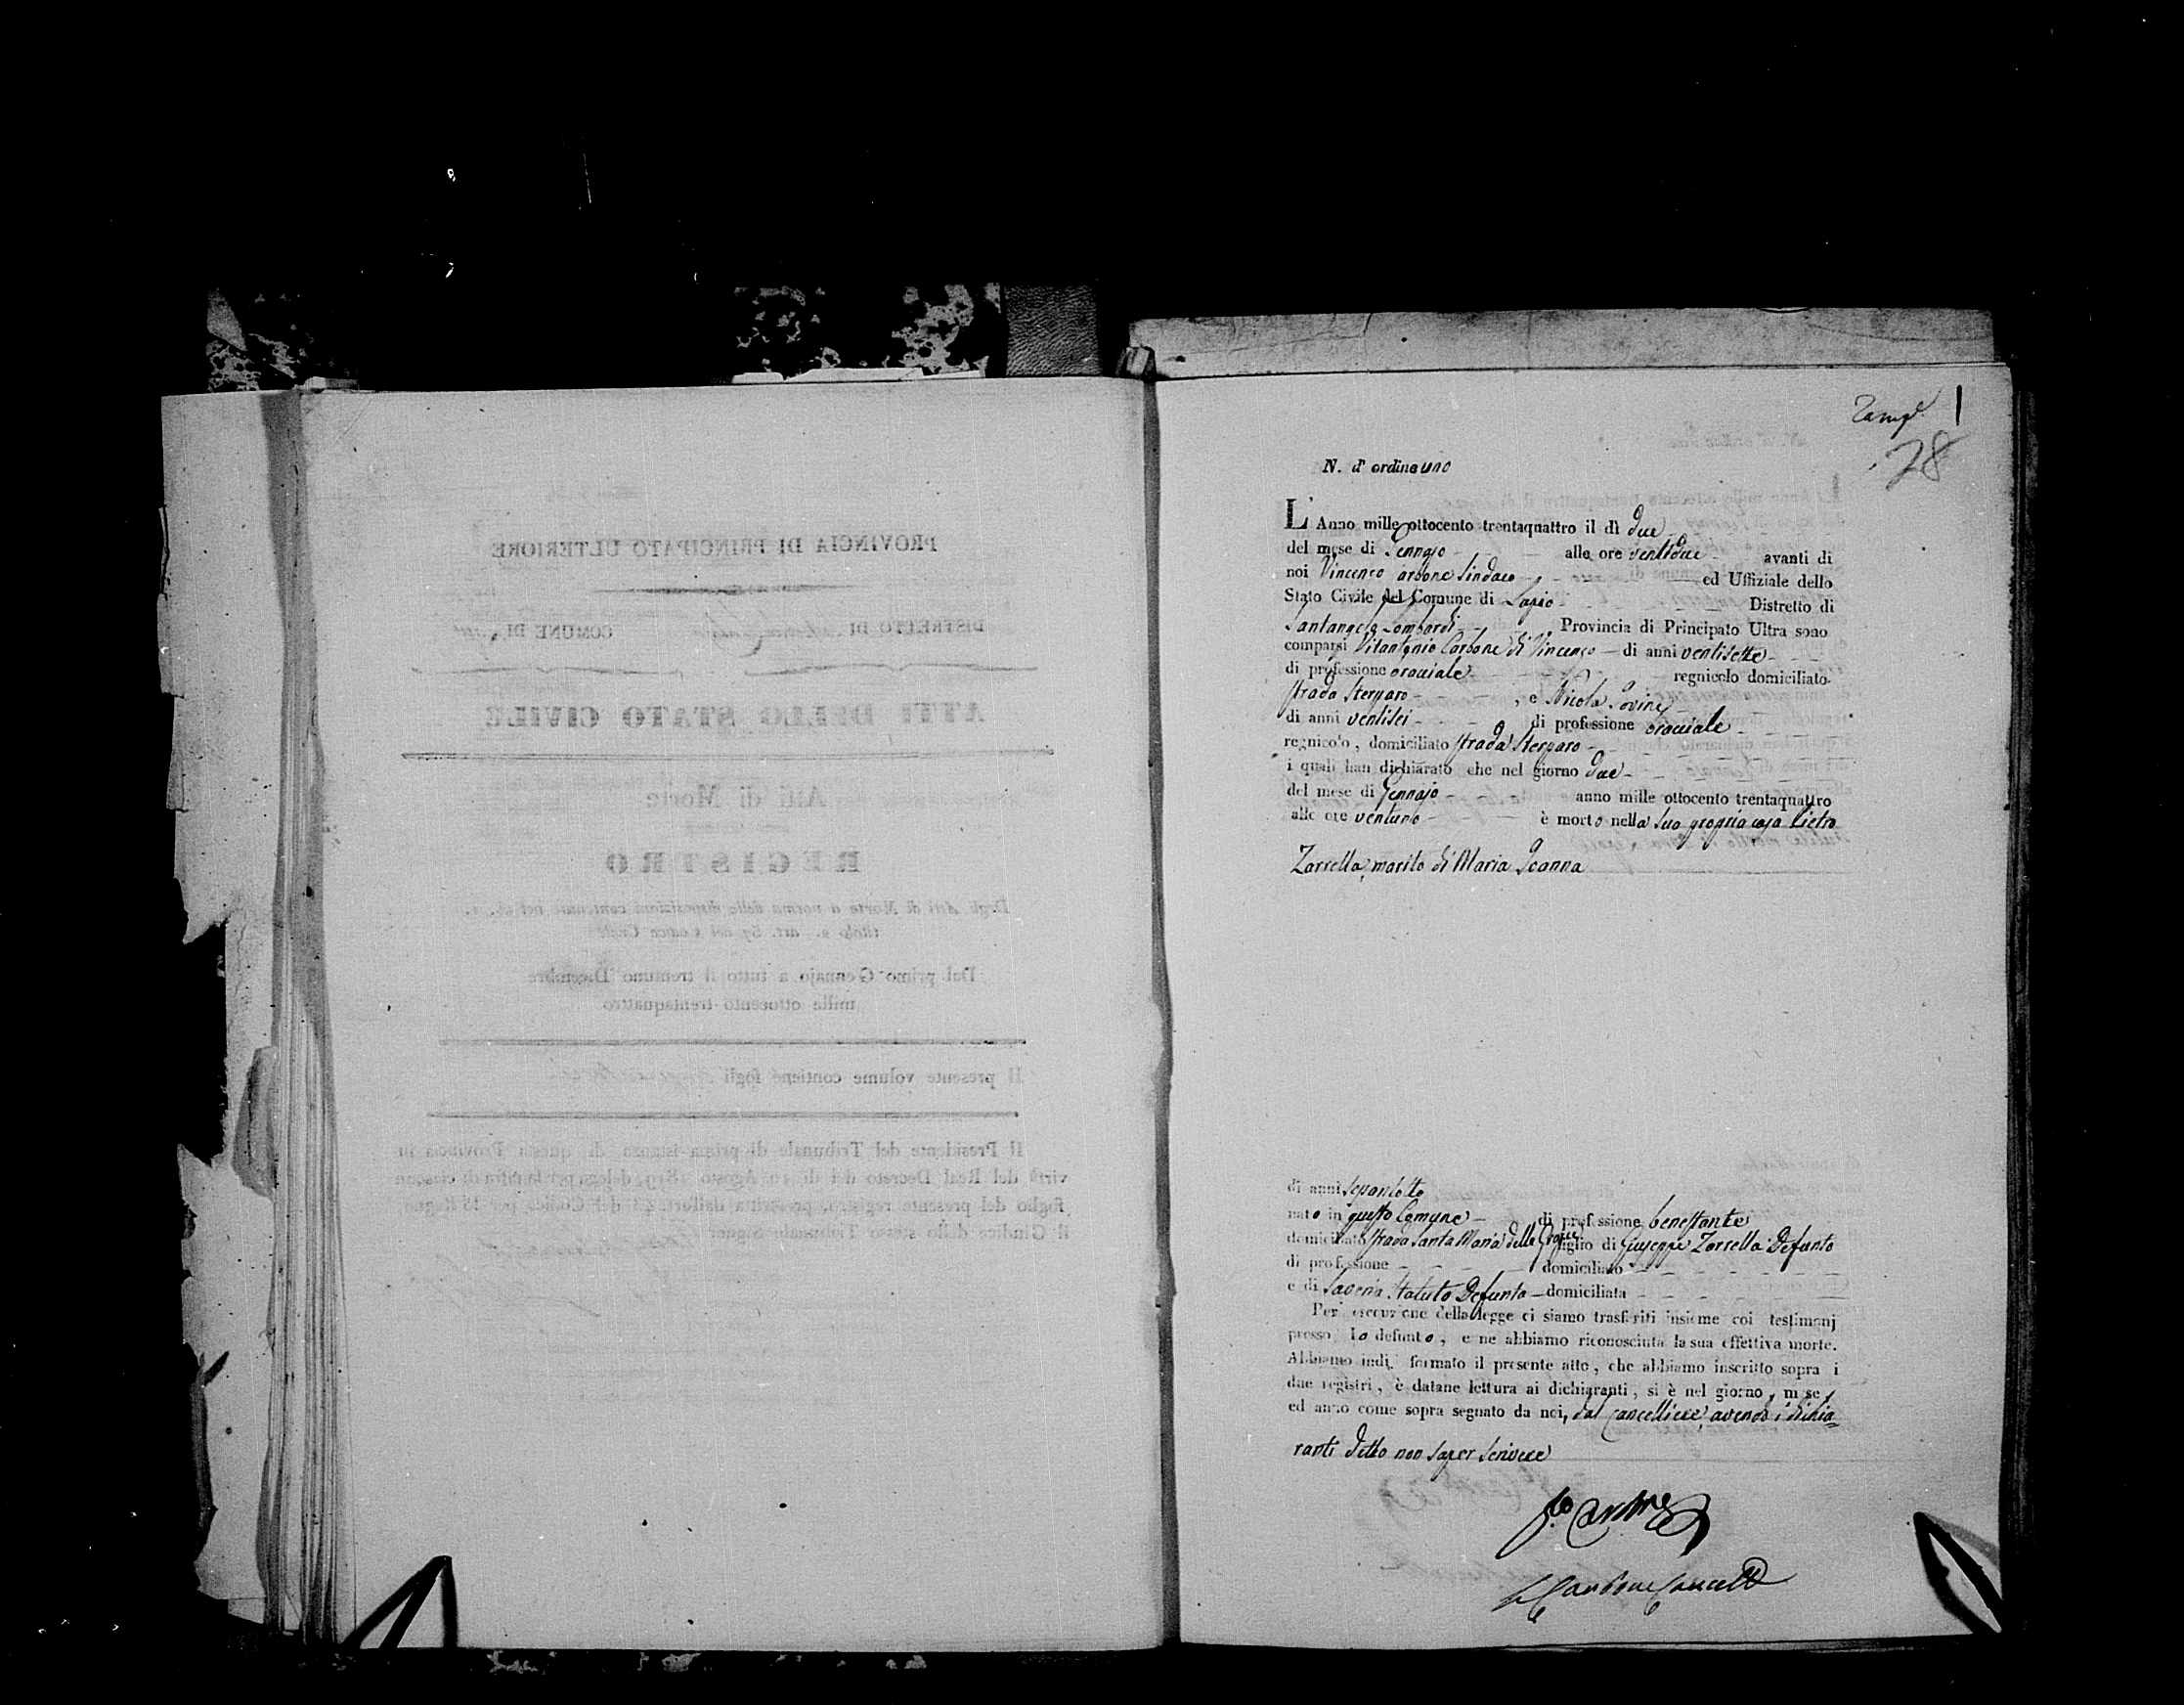 1
28
N. d' ordine uno
L' Anno mille ottocento trentaquattro il dì due
del mese di Gennajo alle ore ventidue avanti di
noi Vincenzo Carbone Sindaco ed Uffiziale dello
Stato Civile del Comune di Lapio Distretto di
Santangelo Lombardi Provincia di Principato Ultra sono
comparsi Vitantonio Carbone di Vincenzo di anni ventisette
di professione bracciale regnicolo domiciliato
strada Sterparo , e Nicola Iovine
di anni ventisei di professione bracciale
regnicolo , domiciliato strada Sterparo
i quali han dichiarato che nel giorno due
del mese di Gennajo anno mille ottocento trentaquattro
alle ore ventuno è morto nella sua propria casa Pietro
Zarrella, marito di Maria
di anni
nato in questo Comune di professione benestante
domiciliato strada Santa Maria delle Grazie figlio di Giuseppe Zarrella Defunto
di professione domiciliato
e di Saveria Statuto Defunta domiciliata
Per esecuzione della legge ci siamo trasferiti insieme coi testimonj
presso lo defunto , e ne abbiamo riconosciuta la sua effettiva morte.
Abbiamo indi formato il presente atto , che abbiamo inscritto sopra i
due registri , è datane lettura ai dichiaranti , si è nel giorno , mese ,
ed anno come sopra segnato da noi, dal Cancelliere, avendo i dichia=
ranti detto non saper scrivere
PROVINCIA DI PRINCIPATO ULTERIORE
DISTRETTO DI COMUNE DI
ATTI DELLO STATO CIVILE
Atti di Morte
REGISTRO
Degli Atti di Morte a norma delle disposizioni contenute nel
titolo 2. art. del Codice Civile
Dal primo Gennajo a tutto il trentuno Decembre
mille ottocento trentaquattro
Il presente volume contiene fogli
Il Presidente del Tribunale di prima istanza di questa Provincia in
virtù del Real Decreto del dì Agosto
foglio del presente registro, prescritta
il Giudice dello stesso Tribunale Signor